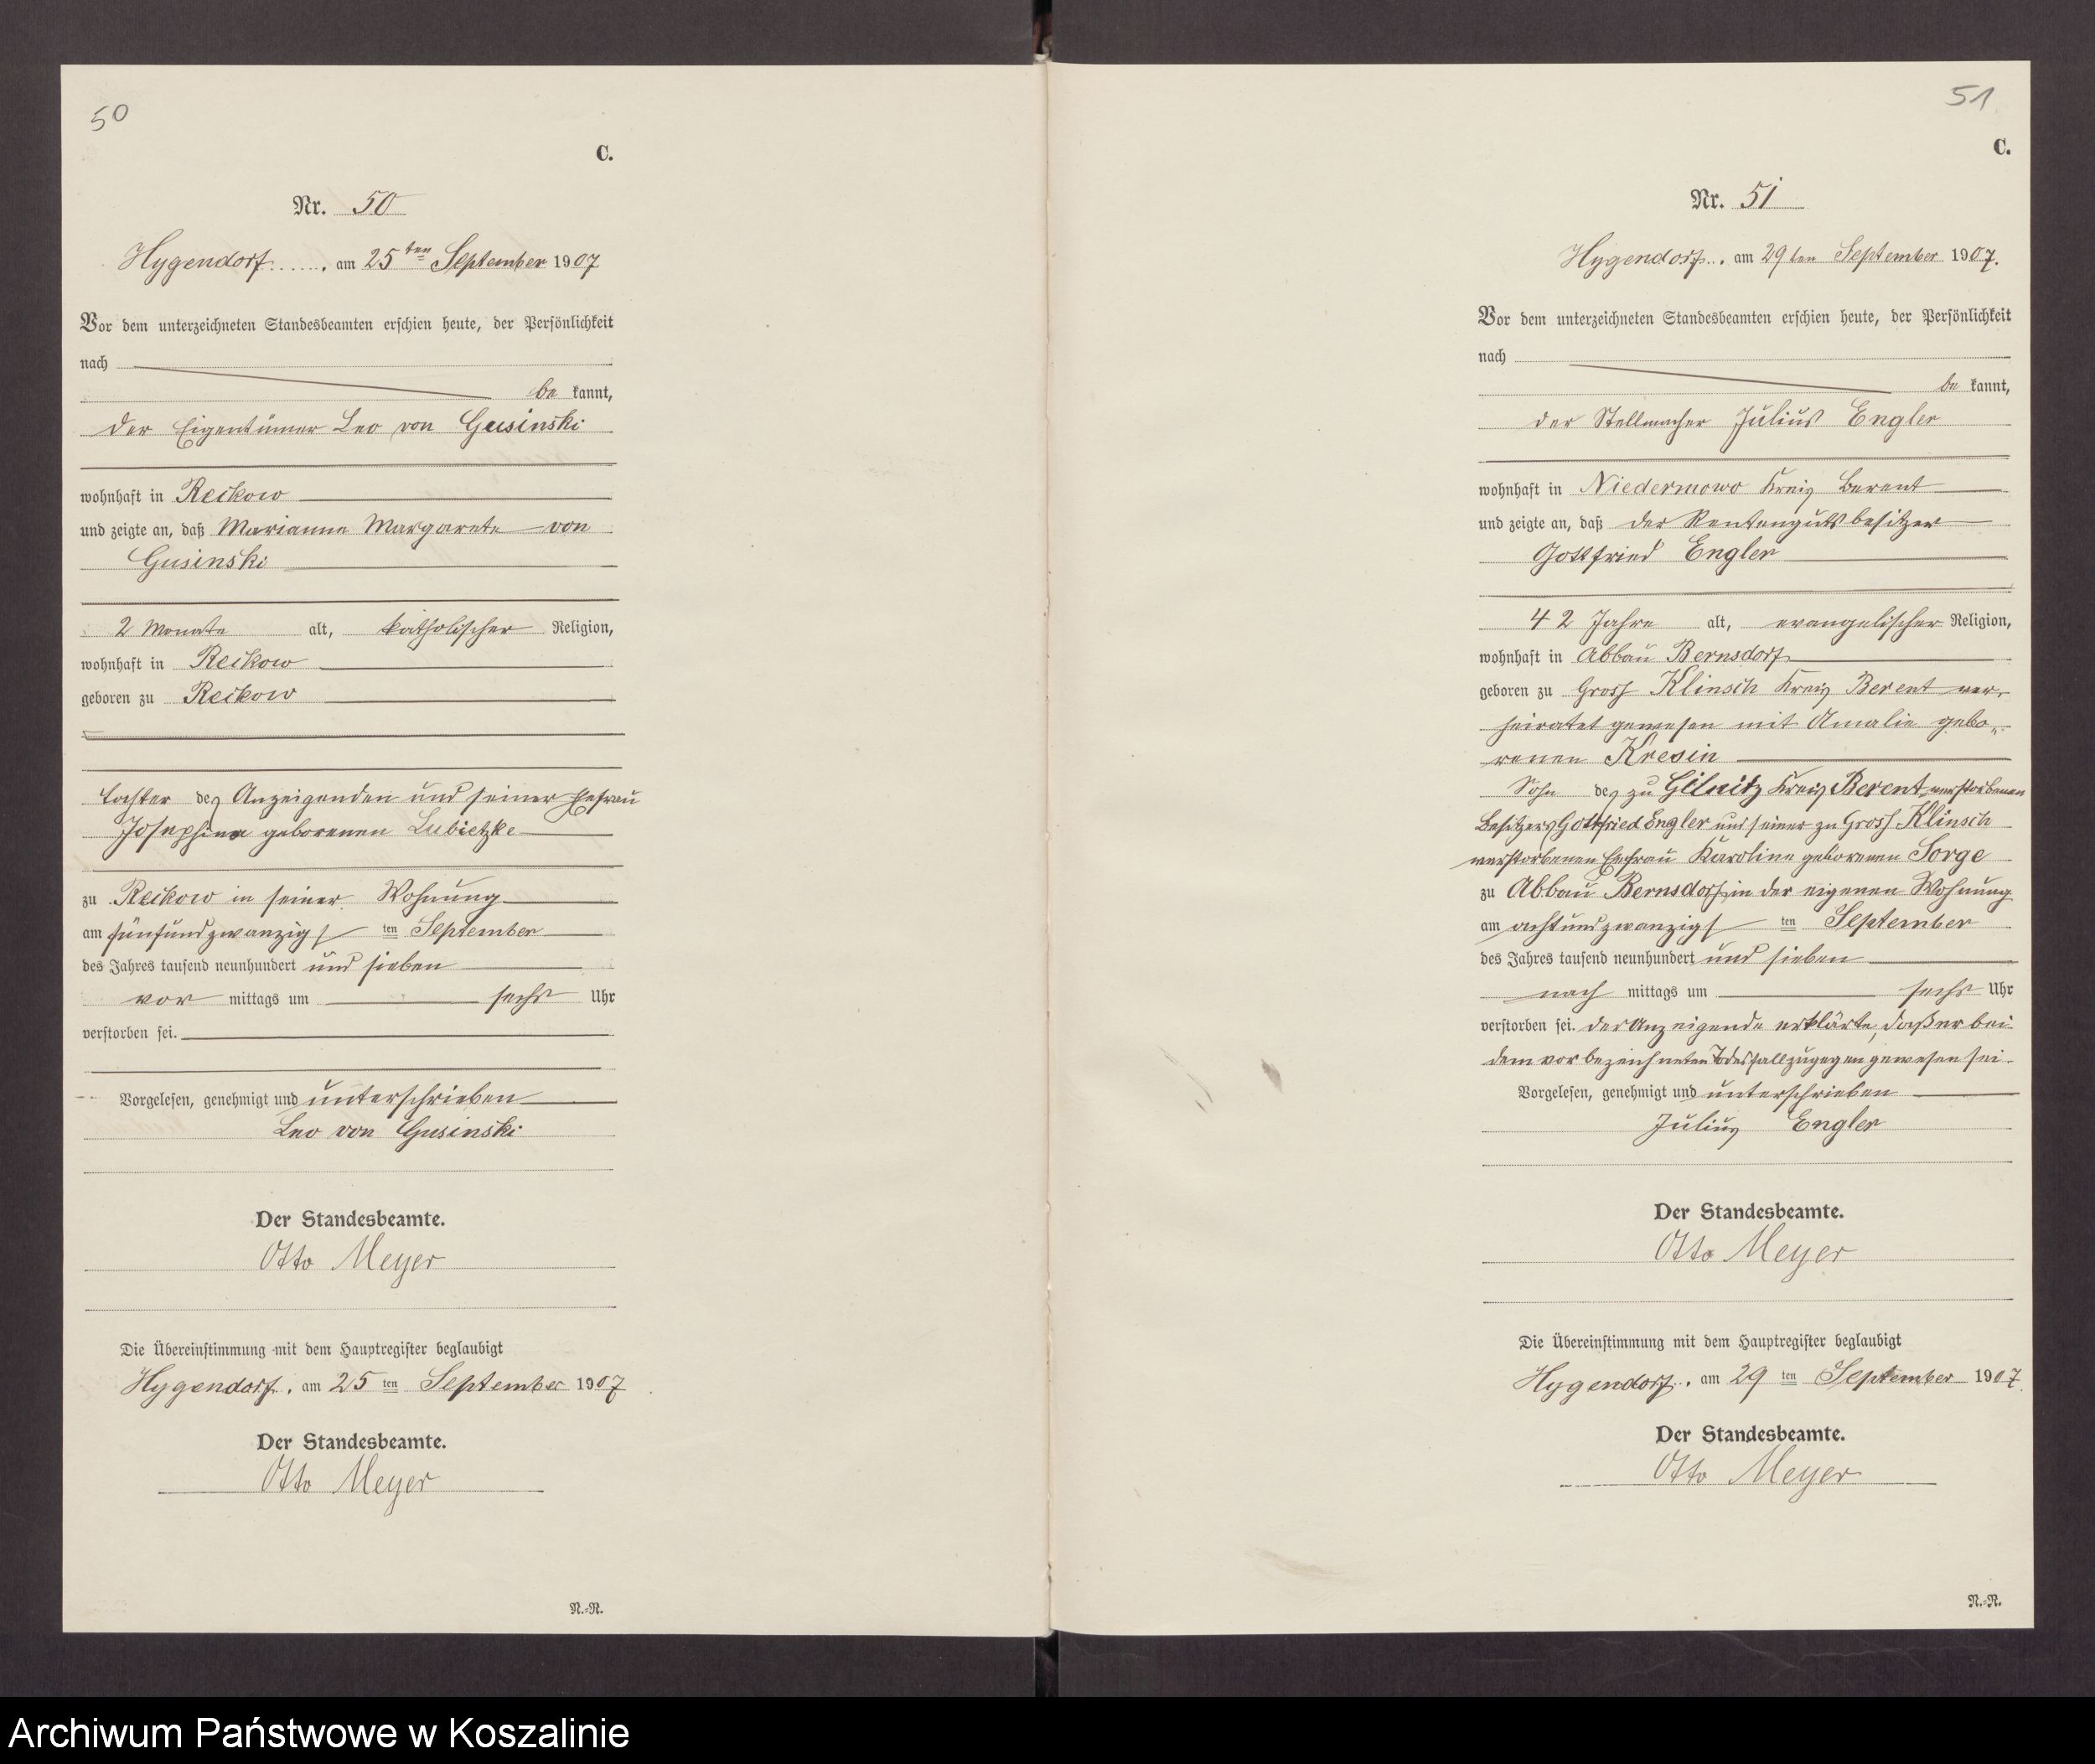 50
C.
Nr. 50
Hygendorf, am 25ten September 1907
Vor dem unterzeichneten Standesbeamten erschien heute, der Persönlichkeit
nach
be kannt,
der Eigentümer Leo von Gusinski
wohnhaft in Reckow
und zeigte an, daß Marianne Margarete von
Gusinski
2 Monate alt, katholischer Religion,
wohnhaft in Reckow
geboren zu Reckow
Tochter des Anzeigenden und seiner Ehefrau
Josephine geborenen Lubietzke
zu Reckow in seiner Wohnung
am fünfundzwanzigsten September
des Jahres tausend neunhundert und sieben
vor mittags um sechs Uhr
verstorben sei.
Vorgelesen, genehmigt und unterschrieben
Leo von Gusinski
Der Standesbeamte.
Otto Meyer
Die Übereinstimmung mit dem Hauptregister beglaubigt
Hygendorf, am 25ten September 1907
Der Standesbeamte.
Otto Meyer
N.-R.
51
C.
Nr. 51
Hygendorf, am 29ten September 1907.
Vor dem unterzeichneten Standesbeamten erschien heute, der Persönlichkeit
nach
be kannt,
der Stellmacher Julius Engler
wohnhaft in Niedermowo Kreis Berent
und zeigte an, daß der Rentengutsbesitzer
Gottfried Engler
42 Jahre alt, evangelischer Religion,
wohnhaft in Abbau Bernsdorf
geboren zu Gross Klinsch Kreis Berent ver-
heiratet gewesen mit Amalie gebo-
renen Kresin
Sohn des zu Kreis Berent verstorbenen
Besitzers Gottfried Engler und seiner zu Gross Klinsch
verstorbenen Ehefrau Karoline geborenen Sorge
zu Abbau Bernsdorf in der eigenen Wohnung
am achtundzwanzigsten September
des Jahres tausend neunhundert und sieben
nach mittags um sechs Uhr
verstorben sei. Der Anzeigende erklärte, daß er bei
dem vorbezeichneten Todesfall zugegen gewesen sei.
Vorgelesen, genehmigt und unterschrieben
Julius Engler
Der Standesbeamte.
Otto Meyer
Die Übereinstimmung mit dem Hauptregister beglaubigt
Hygendorf, am 29ten September 1907.
Der Standesbeamte.
Otto Meyer
N.-R.
Archiwum Państwowe w Koszalinie